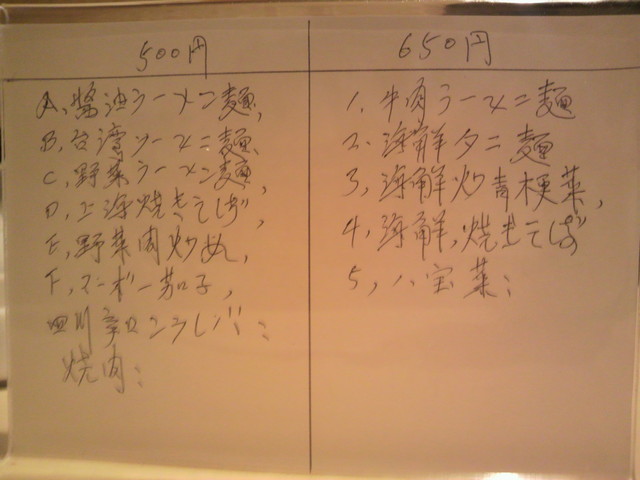 500円
A、醬油ラーメン麺、
B、台湾ソーメニ麺、
C、野菜ラーメン麺、
D、上海焼きそば、
E、野菜肉炒め、
F、マーボー茄子、
四川辛口
焼肉：
650円
1、牛肉ラーメニ麺
2、海鮮タニ麺
3、海鮮炒青梗菜、
4、海鮮、焼きそば
5、八宝菜；